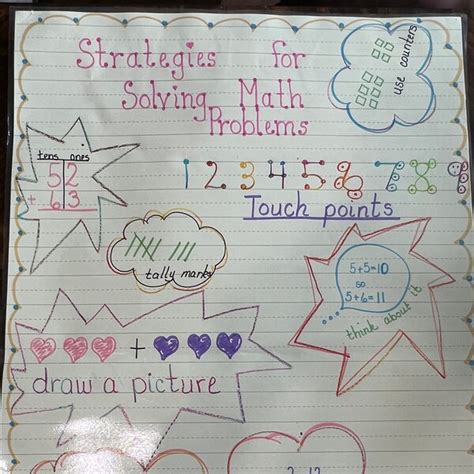 Strategies for
Solving Math
Problems
use counters
tens ones
52
+ 63
1 2 3 4 5 6 7 8 9
Touch points
tally marks
5+5=10
so
5+6=11
think about it
+
draw a picture